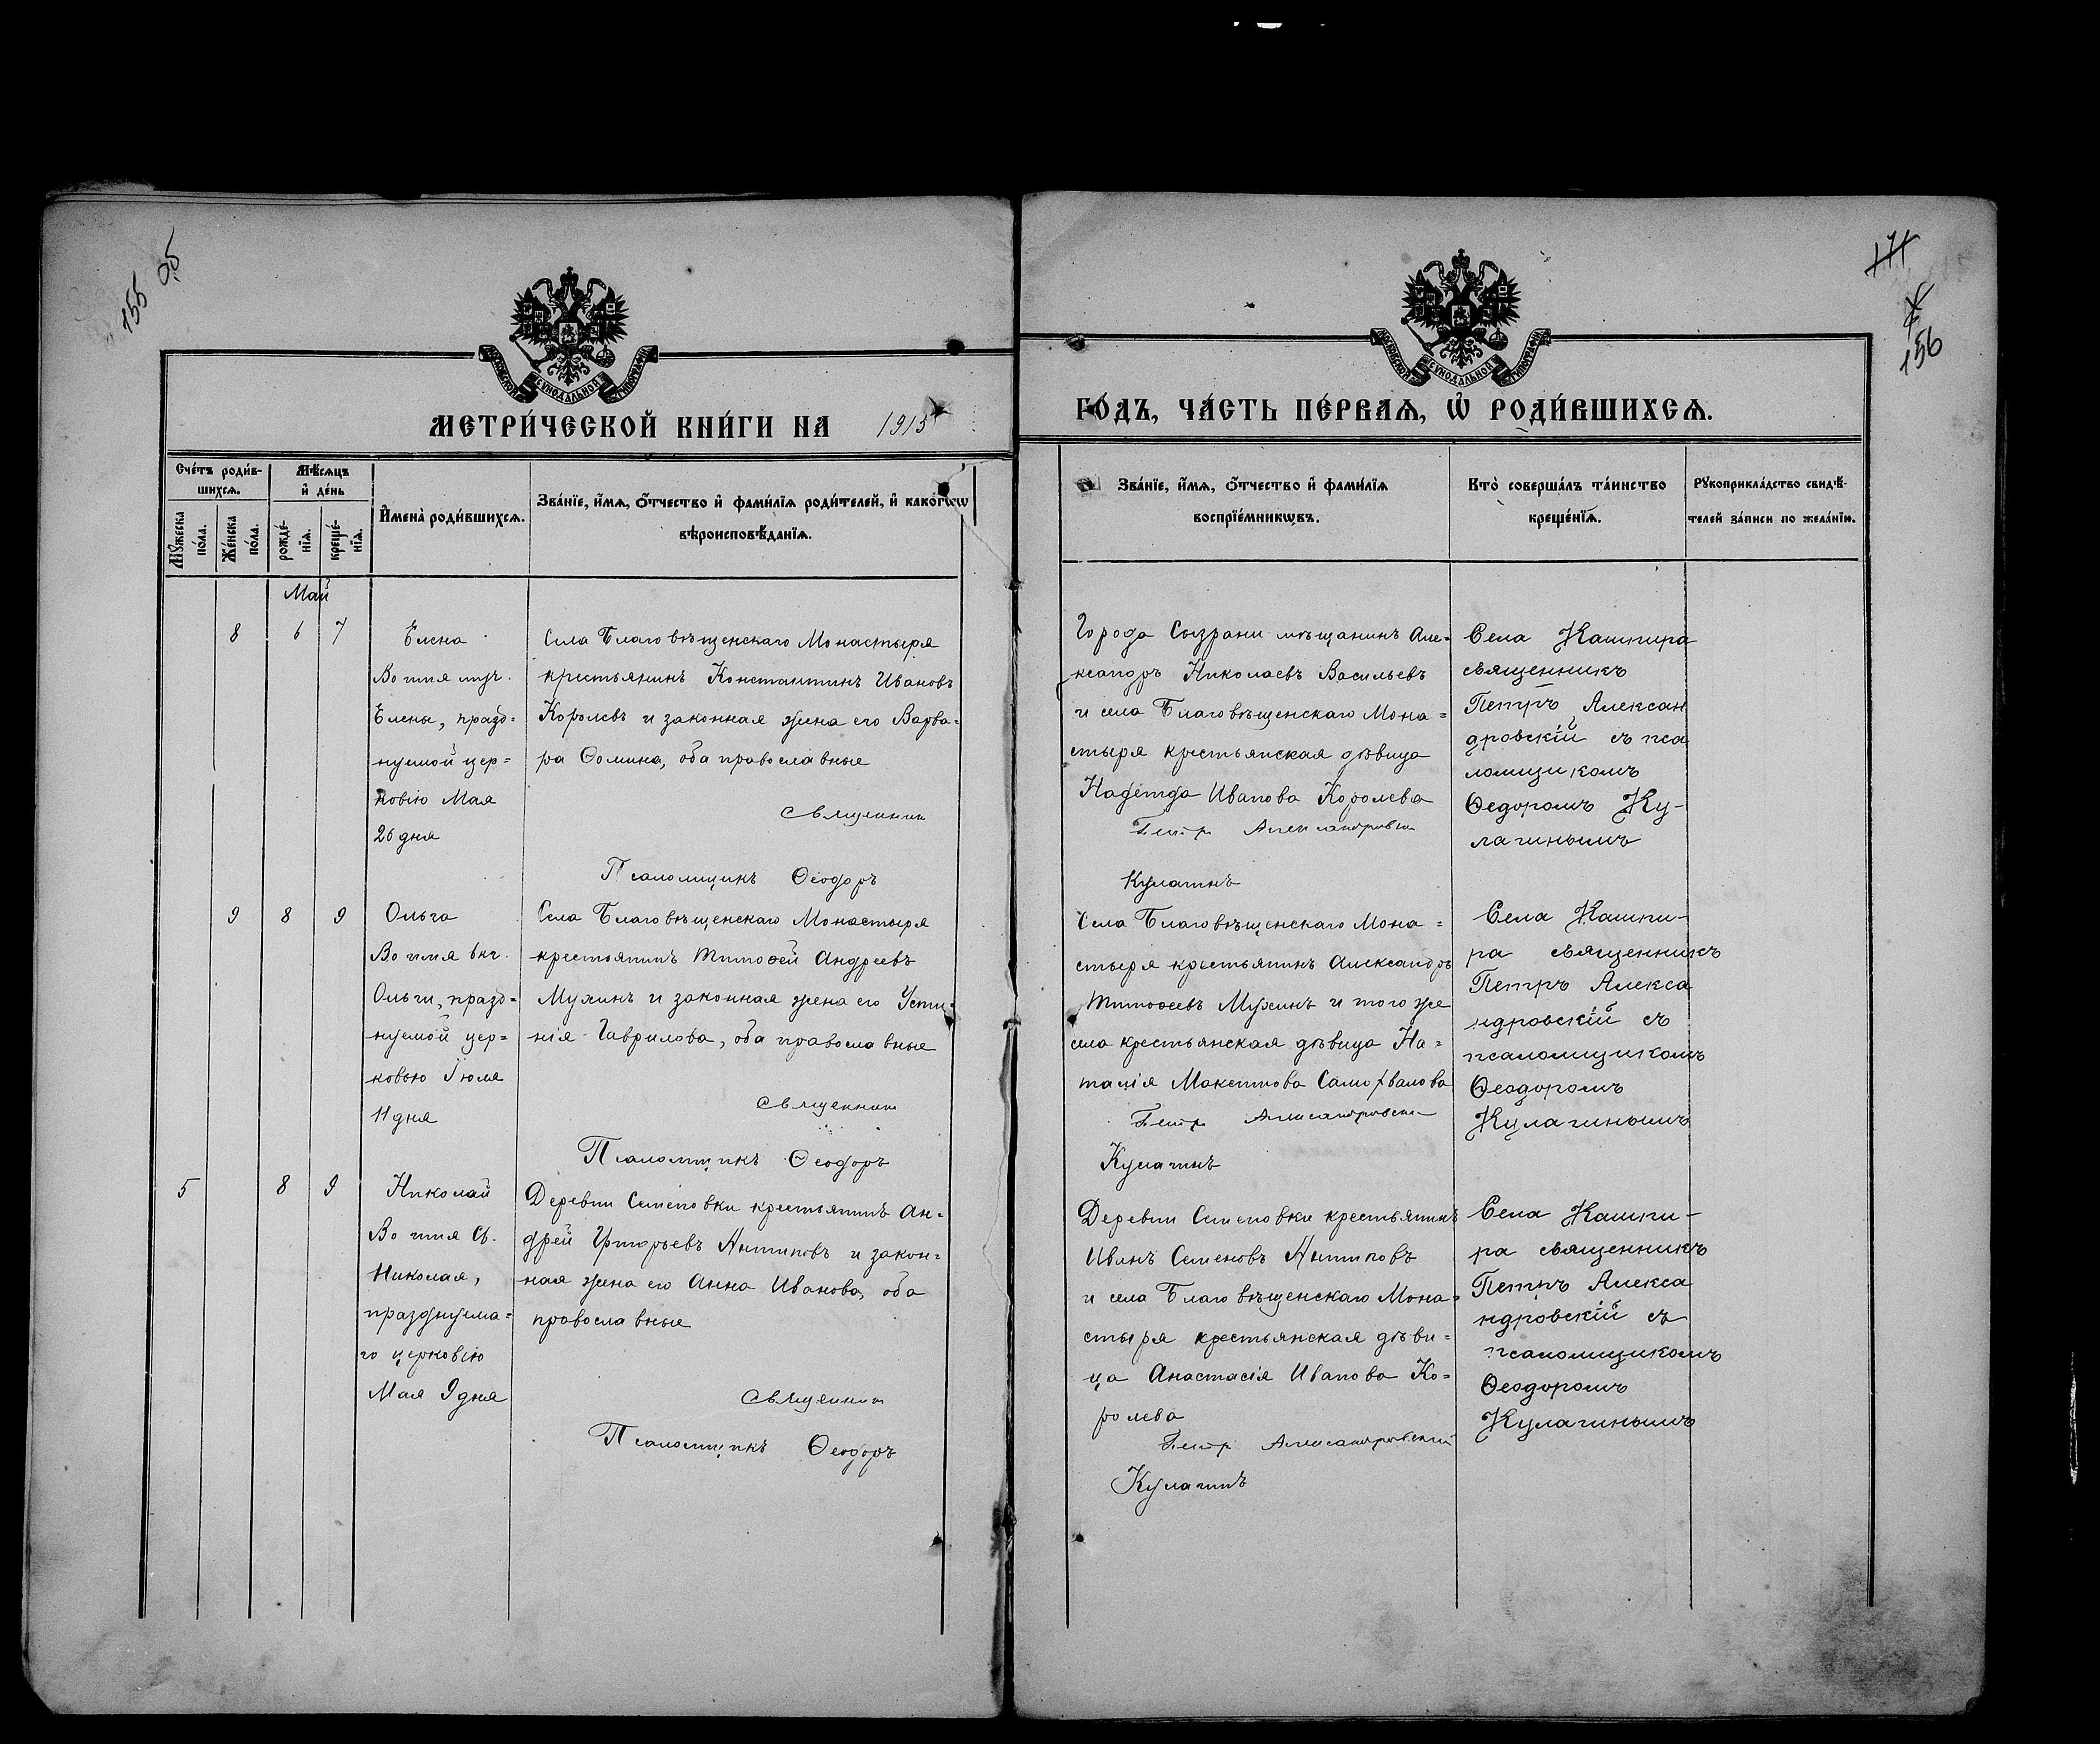 155 об
171
156
МОСКОВСКОЙ СѴНОДАЛЬНОЙ ТИПОГРАФІИ
МОСКОВСКОЙ СѴНОДАЛЬНОЙ ТИПОГРАФІИ
МЕТРИ́ЧЕСКОЙ КНИ́ГИ НА 1915
ГО́ДЪ, ЧА́СТЬ ПЕ́РВАѦ, Ѡ҆ РОДИ́ВШИХСѦ.
Сче́тъ роди́в-
шихсѧ.
Мѣ́сѧцъ
и҆ де́нь
Мꙋ́жеска
по́ла.
Же́нска
по́ла.
рожде́-
нїѧ.
креще́-
нїѧ.
И҆мена̀ роди́вшихсѧ.
Зва́нїе, и҆́мѧ, ѻ҆́тчество и҆ фами́лїѧ роди́телей, и҆ како́гѡ
вѣроисповѣ́данїѧ.
Зва́нїе, и҆́мѧ, ѻ҆́тчество и҆ фами́лїѧ
воспрїе́мникѡвъ.
Кто̀ соверша́лъ та́инство
креще́нїѧ.
Рꙋкоприкла́дство свидѣ́-
телей за́писи по жела́нїю.
Май
8 6 7
Елена
Во имя муч.
Елены, празд-
нуемой цер-
ковію Мая
26 дня
Села Благовѣщенскаго Монастыря
крестьянинъ Константинъ Ивановъ
Королевъ и законная жена его Варва-
ра Ѳомина, оба православные
Священникъ
Псаломщикъ Ѳеодоръ
Города Сызрани мѣщанинъ Але-
ксандръ Николаевъ Васильевъ
и села Благовѣщенскаго Мона-
стыря крестьянская дѣвица
Надежда Иванова Королева
Петръ Александровскій
Кулагинъ
Села Кашпира
священникъ
Петръ Алексан
дровскій съ пса
ломщикомъ
Ѳедоромъ Ку-
лагинымъ
9 8 9
Ольга
Во имя вкг.
Ольги, празд-
нуемой цер-
ковью Іюля
11 дня
Села Благовѣщенскаго Монастыря
крестьянинъ Тимоѳей Андреевъ
Мухинъ и законная жена его Усти-
нія Гаврилова, оба православные
Священникъ
Псаломщикъ Ѳеодоръ
Села Благовѣщенскаго Мона-
стыря крестьянинъ Александръ
Тимоѳеевъ Мухинъ и того же
села крестьянская дѣвица На-
талія Максимова Самохвалова
Петръ Александровскій
Кулагинъ
Села Кашпи-
ра священникъ
Петръ Алекса
ндровскій съ
псаломщикомъ
Ѳеодоромъ
Кулагинымъ
5 8 9
Николай
Во имя Св.
Николая,
празднуема-
го церковію
Мая 9 дня
Деревни Семеновки крестьянинъ Ан-
дрей Григорьевъ Антиповъ и закон-
ная жена его Анна Иванова, оба
православные
Священникъ
Псаломщикъ Ѳеодоръ
Деревни Семеновки крестьянинъ
Иванъ Семеновъ Антиповъ
и села Благовѣщенскаго Мона-
стыря крестьянская дѣви-
ца Анастасія Иванова Ко-
ролева
Петръ Александровскій
Кулагинъ
Села Кашпи-
ра священникъ
Петръ Алекса
ндровскій съ
псаломщикомъ
Ѳеодоромъ
Кулагинымъ